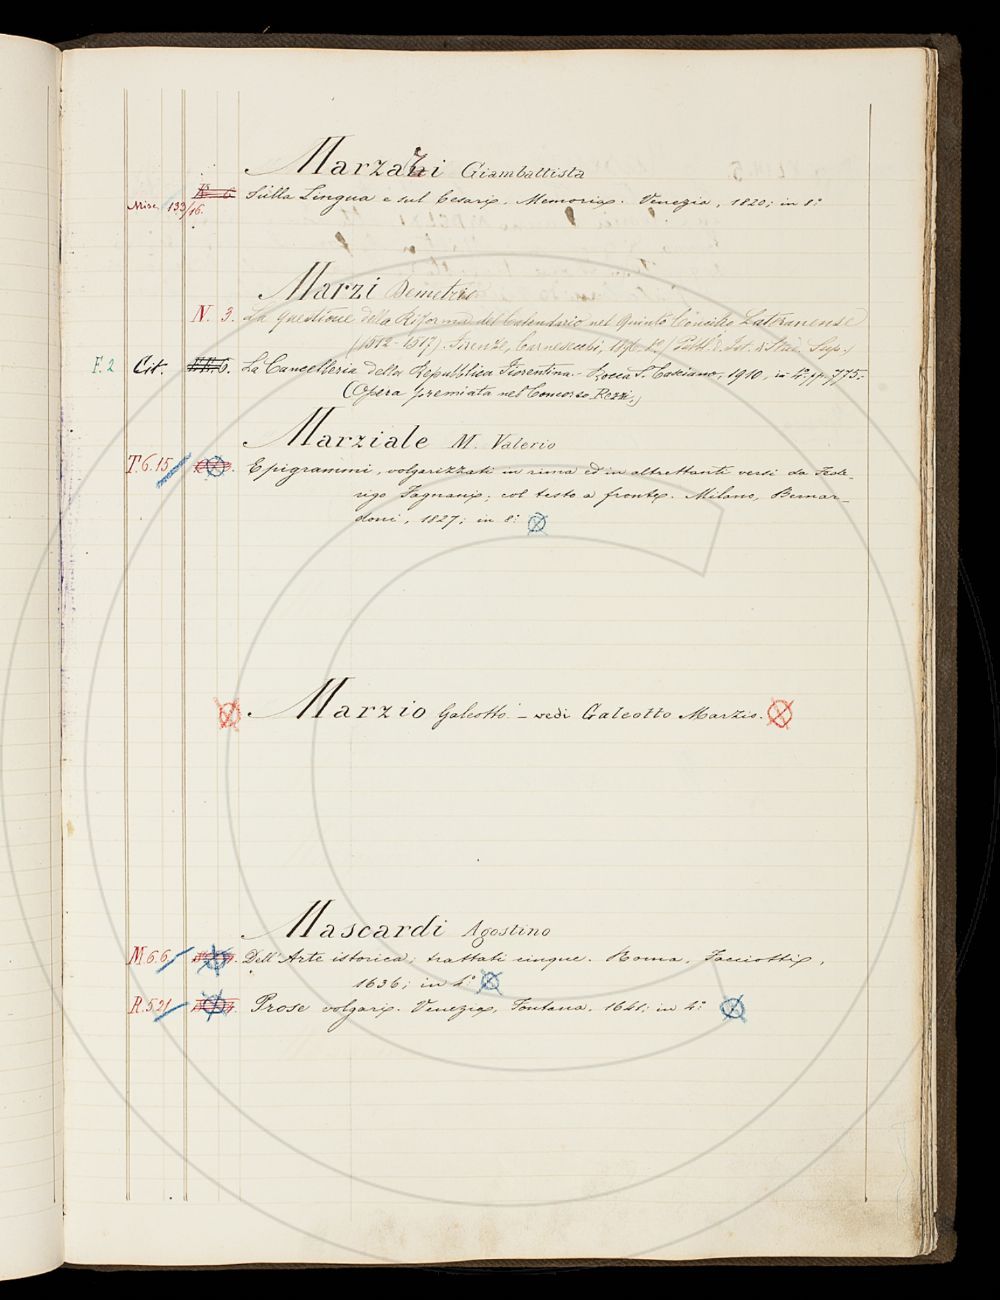 Marzari Giambattista
Misc. 133/16. Sulla Lingua e sul Cesari. Memoria. Venezia, 1820; in 8.°
Marzi Demetrio
N. 3. La Questione della Riforma del Calendario nel Quinto Concilio Lateranense
(1512-1517). Firenze, Carnesecchi, 1896. 8.° (Pubbl. d. Ist. di Stud. Sup.)
F. 2 Cit. La Cancelleria della Repubblica Fiorentina. - Rocca S. Casciano, 1910, in 4.° pp. 775.
(Opera premiata nel Concorso Rezzi)
Marziale M. Valerio
T. 6. 15 Epigrammi, volgarizzati in rima ed in altrettanti versi da Fede-
rigo Fagnani; col testo a fronte. Milano, Bernar-
doni, 1827; in 8.°
Marzio Galeotto - vedi Galeotto Marzio.
Mascardi Agostino
M 6.6 Dell'Arte istorica; trattati cinque. Roma, Facciotti,
1636; in 4.°
R. 5 21 Prose volgari. Venezia, Fontana, 1641; in 4.°